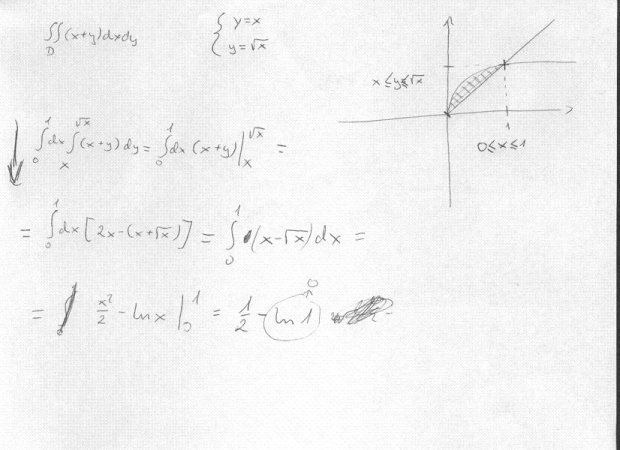 ∬(x+y)dxdy
D
{ y=x
y=√x
x≤y≤√x
1
0≤x≤1
∫₀¹dx∫ₓ^√x(x+y)dy = ∫₀¹dx(x+y)|ₓ^√x =
= ∫₀¹dx[2x-(x+√x)] = ∫₀¹(x-√x)dx =
= x²/2 - ln x |₀¹ = 1/2 - ln 1
0